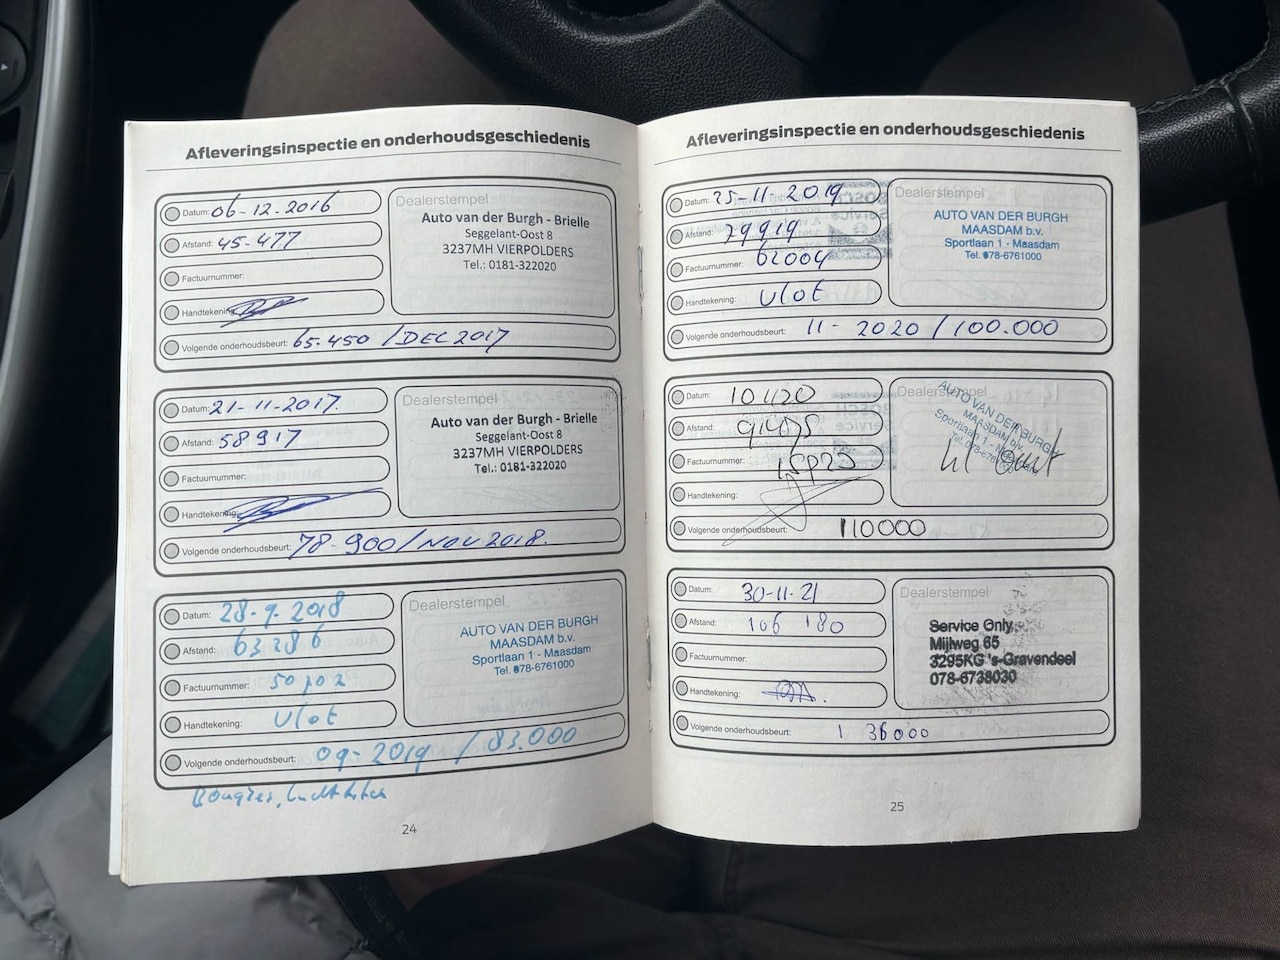 Afleveringsinspectie en onderhoudsgeschiedenis
Datum: 06-12-2016
Afstand: 45-477
Factuurnummer:
Handtekening:
Volgende onderhoudsbeurt: 65.450 / DEC 2017
Dealerstempel
Auto van der Burgh - Brielle
Seggelant-Oost 8
3237MH VIERPOLDERS
Tel.: 0181-322020
Datum: 21-11-2017.
Afstand: 58917
Factuurnummer:
Handtekening:
Volgende onderhoudsbeurt: 78-900/NOV 2018.
Dealerstempel
Auto van der Burgh - Brielle
Seggelant-Oost 8
3237MH VIERPOLDERS
Tel.: 0181-322020
Datum: 28-9-2018
Afstand: 63286
Factuurnummer:
Handtekening: Vlot
Volgende onderhoudsbeurt: 09-2019 / 83.000
Dealerstempel
AUTO VAN DER BURGH
MAASDAM b.v.
Sportlaan 1 - Maasdam
Tel. 078-6761000
Bougies,
24
Afleveringsinspectie en onderhoudsgeschiedenis
Datum: 25-11-2019
Afstand: 79919
Factuurnummer: 62004
Handtekening: Vlot
Volgende onderhoudsbeurt: 11-2020 / 100.000
Dealerstempel
AUTO VAN DER BURGH
MAASDAM b.v.
Sportlaan 1 - Maasdam
Tel. 078-6761000
Datum:
Afstand:
Factuurnummer:
Handtekening:
Volgende onderhoudsbeurt: 110000
Dealerstempel
AUTO VAN DER BURGH
MAASDAM b.v.
Sportlaan 1 -
Datum: 30-11-21
Afstand: 106 180
Factuurnummer:
Handtekening:
Volgende onderhoudsbeurt: 136000
Dealerstempel
Service Only
Mijlweg 65
3295KG 's-Gravendeel
078-6738030
25